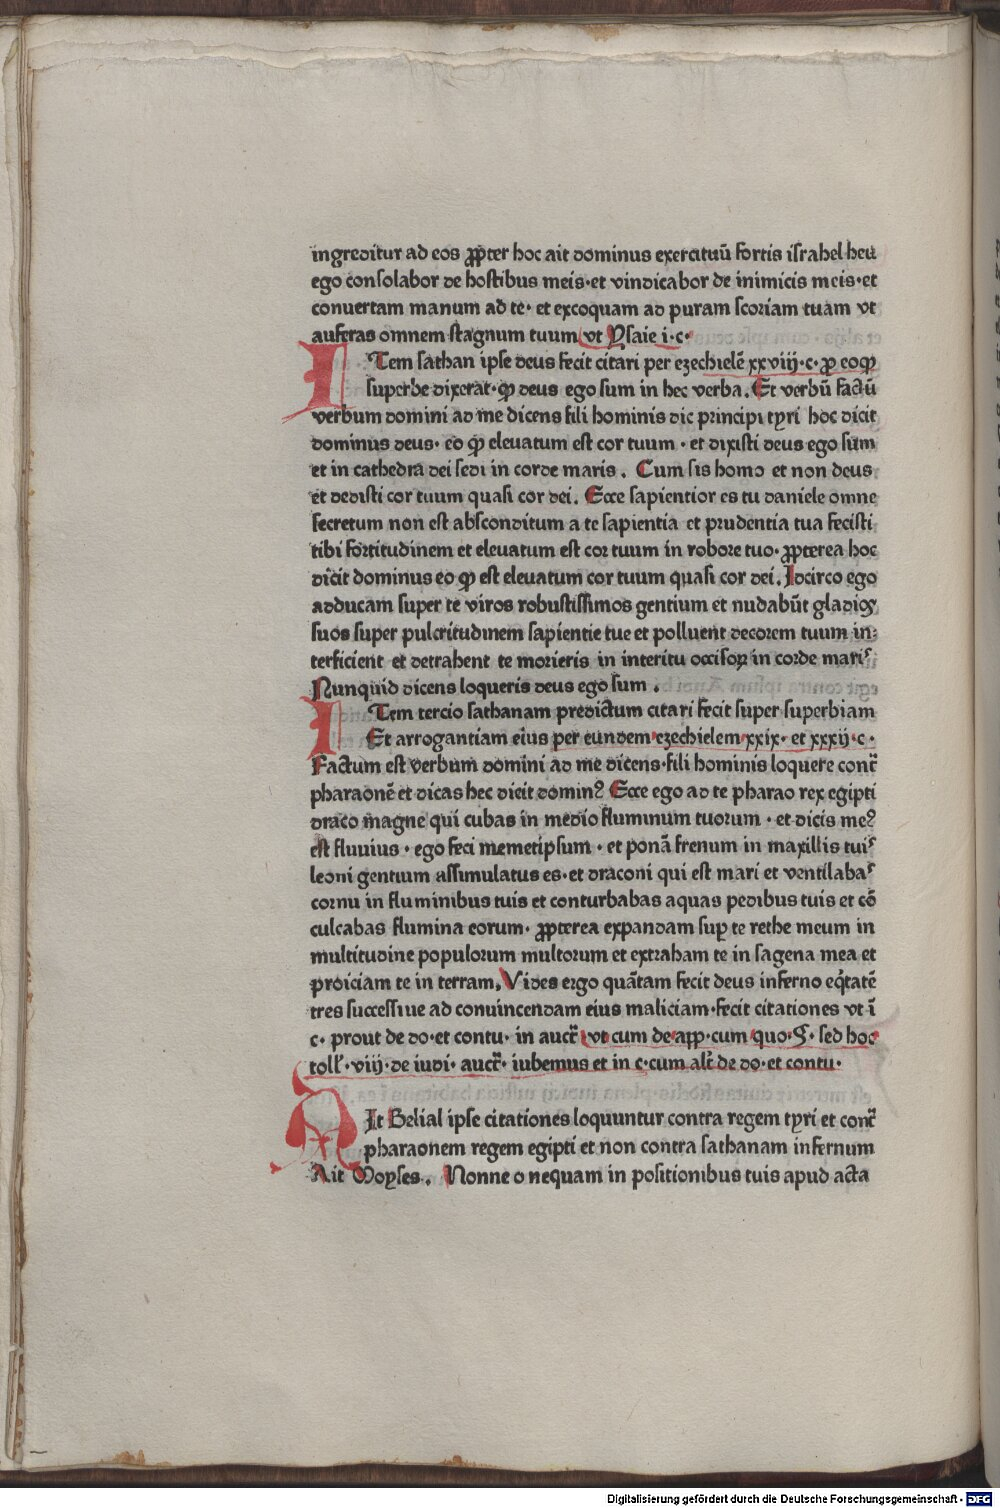 ingreditur ad eos ꝓpter hoc ait dominus exercituū fortis israhel heu
ego consolabor de hostibus meis·et vindicabor de inimicis meis·et
conuertam manum ad te· et excoquam ad puram scoriam tuam vt
auferas omnem stagnum tuum vt Ysaie i·c·
ITem sathan ipse deus fecit citari per ezechielē xxviij·c·ꝓ eoꝙ
superbe dixerat·ꝙ deus ego sum in hec verba. Et verbū factū
verbum domini ad me dicens fili hominis dic principi tyri hoc dicit
dominus deus· eo ꝙ eleuatum est cor tuum · et dixisti deus ego sum
et in cathedra dei sedi in corde maris. Cum sis homo et non deus
et dedisti cor tuum quasi cor dei. Ecce sapientior es tu daniele omne
secretum non est absconditum a te sapientia et prudentia tua fecisti
tibi fortitudinem et eleuatum est cor tuum in robore tuo· ꝓpterea hoc
dicit dominus eo ꝙ est eleuatum cor tuum quasi cor dei. Idcirco ego
adducam super te viros robustissimos gentium et nudabūt gladioꝝ
suos super pulcritudinem sapientie tue et polluent decorem tuum in:
terficient et detrahent te morieris in interitu occisoꝝ in corde maris
Nunquid dicens loqueris deus ego sum .
ITem tercio sathanam predictum citari fecit super superbiam
Et arrogantiam eius per eundem ezechielem xxix· et xxxij·c·
Factum est verbum domini ad me dicens·fili hominis loquere contr̄
pharaonē et dicas hec dicit dominꝰ Ecce ego ad te pharao rex egipti
draco magne qui cubas in medio fluminum tuorum · et dicis meꝰ
est fluuius · ego feci memetipsum · et ponā frenum in maxillis tuis
leoni gentium assimulatus es·et draconi qui est mari et ventilabas
cornu in fluminibus tuis et conturbabas aquas pedibus tuis et cō
culcabas flumina eorum· ꝓpterea expandam suꝑ te rethe meum in
multitudine populorum multorum et extraham te in sagena mea et
proiciam te in terram. Vides ergo quātam fecit deus inferno eq̄tatē
tres successiue ad conuincendam eius maliciam·fecit citationes vt ī
c· prout de do·et contu· in auctr̄ vt cum de app·cum quo·§· sed hoc
toll̄·viij·de iudi· auctr̄· iubemus et in c·cum alr̄ de do·et contu·
AIt Belial ipse citationes loquuntur contra regem tyri et contr̄
pharaonem regem egipti et non contra sathanam infernum
Ait Moyses. Nonne o nequam in positionibus tuis apud acta
Digitalisierung gefördert durch die Deutsche Forschungsgemeinschaft - DFG